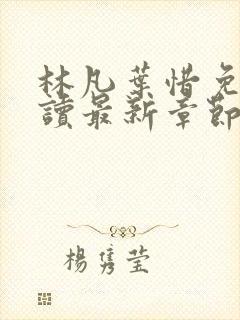 林凡葉惜免
讀最新章節
楊雋莹